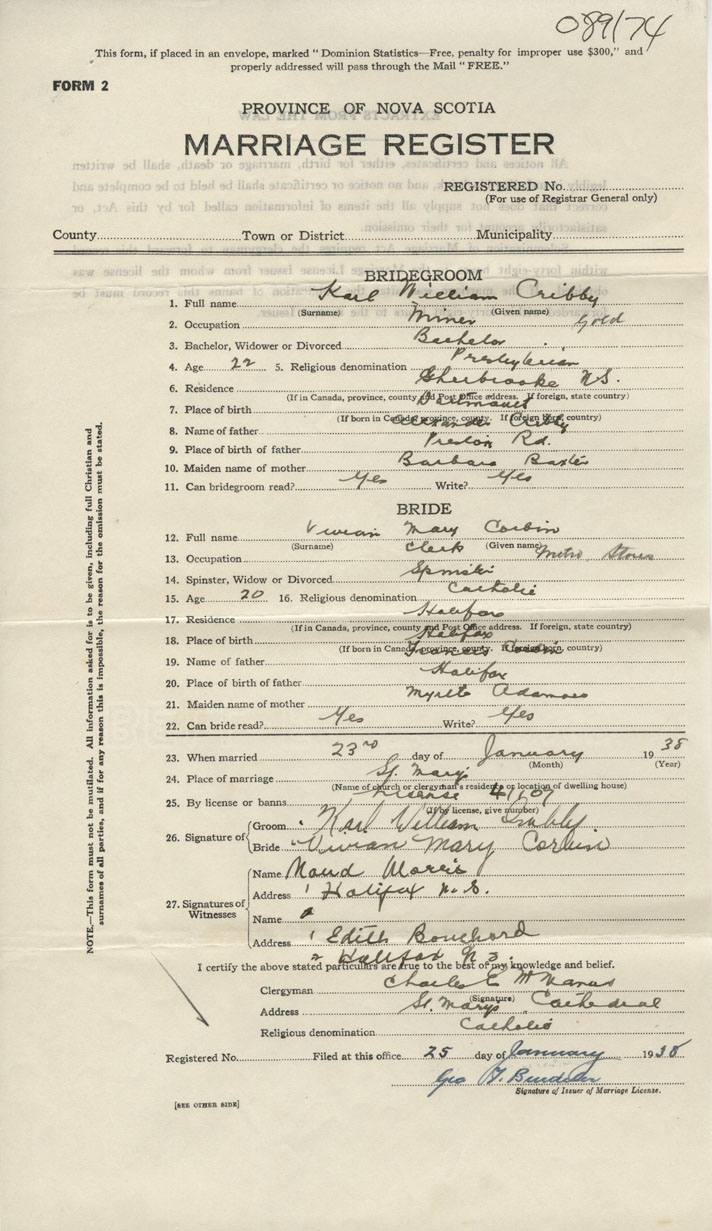 089174
This form, if placed in an envelope, marked "Dominion Statistics—Free, penalty for improper use $300," and
properly addressed will pass through the Mail "FREE."
FORM 2
PROVINCE OF NOVA SCOTIA
MARRIAGE REGISTER
REGISTERED No.
(For use of Registrar General only)
County Town or District Municipality
BRIDEGROOM
1. Full name Karl William Cribby
(Surname) (Given name)
2. Occupation Miner Gold
3. Bachelor, Widower or Divorced Bachelor
4. Age 22 5. Religious denomination Presbyterian
6. Residence Sherbrooke N.S.
(If in Canada, province, county and Post Office address. If foreign, state country)
7. Place of birth
(If born in Canada, province, county. If foreign born, country)
8. Name of father Cribby
9. Place of birth of father Preston Rd.
10. Maiden name of mother Barbara Baxter
11. Can bridegroom read? Yes Write? Yes
BRIDE
12. Full name Vivian Mary Corbin
(Surname) (Given name)
13. Occupation Clerk Metro Stores
14. Spinster, Widow or Divorced Spinster
15. Age 20 16. Religious denomination Catholic
17. Residence Halifax
(If in Canada, province, county and Post Office address. If foreign, state country)
18. Place of birth Halifax
(If born in Canada, province, county. If foreign born, country)
19. Name of father Francis Corbin
20. Place of birth of father Halifax
21. Maiden name of mother Myrtle
22. Can bride read? Yes Write? Yes
23. When married 23rd day of January 1938
(Month) (Year)
24. Place of marriage St. Mary's
(Name of church or clergyman's residence or location of dwelling house)
25. By license or banns License
(If by license, give number)
26. Signature of Groom Karl William Cribby.
Bride Vivian Mary Corbin
27. Signatures of Witnesses
Name Maud Morris
Address 1 Halifax N.S.
Name
Address 1 Edith Bouchard
2 Halifax N.S.
I certify the above stated particulars are true to the best of my knowledge and belief.
Clergyman Charles E McManus
(Signature)
Address St. Mary's Cathedral
Religious denomination Catholic
Registered No. Filed at this office 25 day of January 1938
Geo
Signature of Issuer of Marriage License.
[SEE OTHER SIDE]
NOTE.—This form must not be mutilated. All information asked for is to be given, including full Christian and
surnames of all parties, and if for any reason this is impossible, the reason for the omission must be stated.